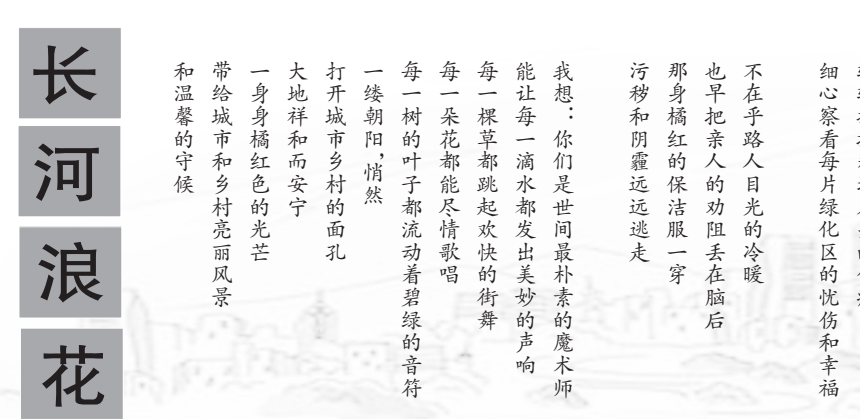 细心察看每片绿化区的忧伤和幸福
不在乎路人目光的冷暖
也早把亲人的劝阻丢在脑后
那身橘红的保洁服一穿
污秽和阴霾远远逃走
我想：你们是世间最朴素的魔术师
能让每一滴水都发出美妙的声响
每一棵草都跳起欢快的街舞
每一朵花都能尽情歌唱
每一树的叶子都流动着碧绿的音符
一缕朝阳，悄然
打开城市乡村的面孔
大地祥和而安宁
一身身橘红色的光芒
带给城市和乡村亮丽风景
和温馨的守候
长河浪花